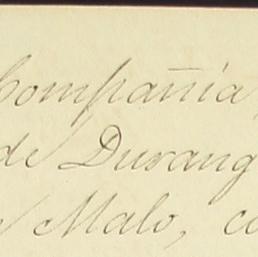 Compañia
de Durang
Malo, co